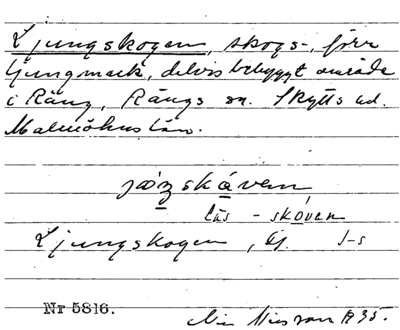 Ljungskogen, skogs-, förr
ljungmark, delvis bebyggt område
i Räng, Rängs sn. Skytts hd.
Malmöhus län.
skåven
läs - skoven
Ljungskogen, ej. J-s
Nr 5816.
Nilsson 1935.